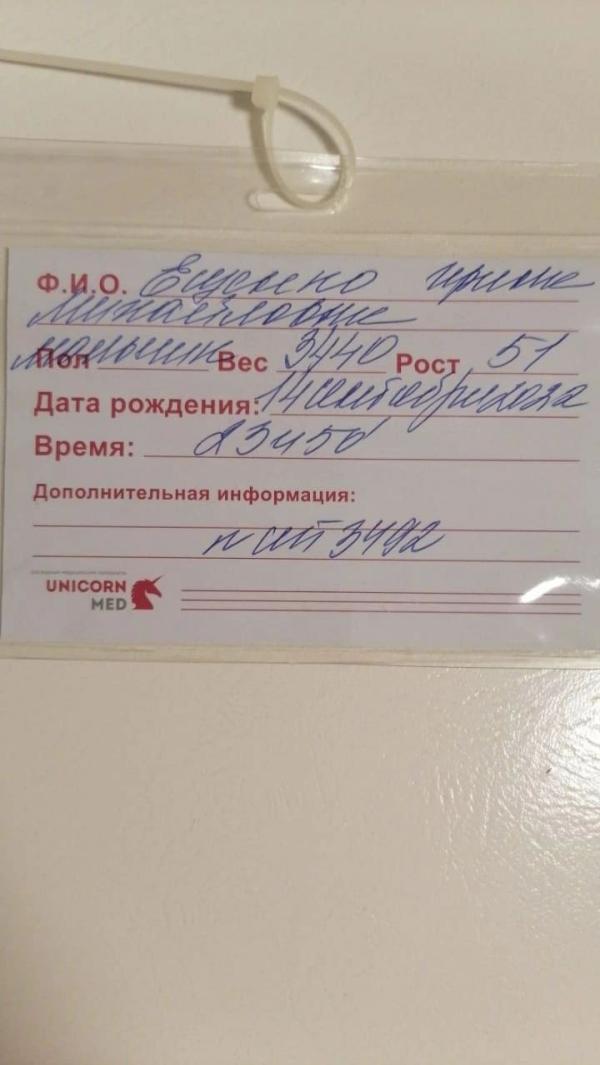 Ф.И.О. Ирине
Михайловне
Пол мальчик Вес 3440 Рост 51
Дата рождения: 14 сентября
Время: 23ч50
Дополнительная информация:
3492
UNICORN
MED